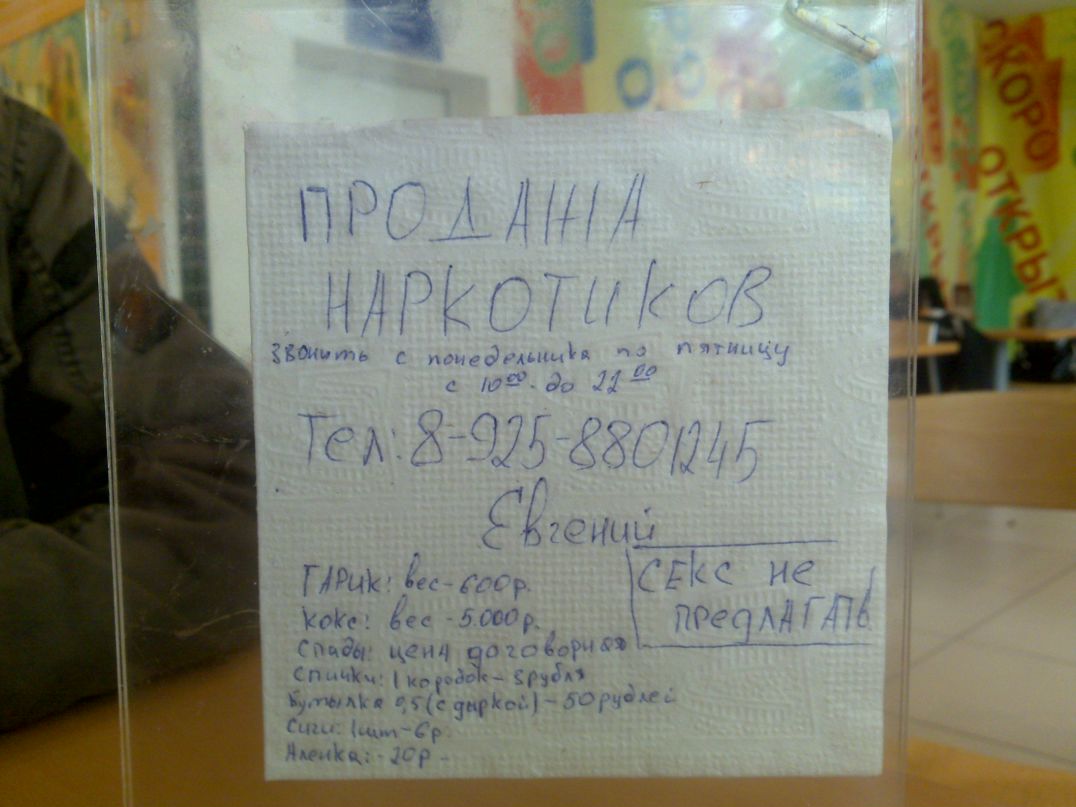 ПРОДАЖА
НАРКОТИКОВ
Звонить с понедельника по пятницу
с 10 00 до 22 00
Тел: 8-925-8801245
Евгений
СЕКС НЕ
ПРЕДЛАГАТЬ
ГАРИК: вес - 600 р.
кокс: вес - 5.000 р.
Спады: цена договорная
Спички: 1 коробок - 3 рубля
Бутылка 0,5 (с дыркой) - 50 рублей
Сиги: 1 шт - 6 р.
Аленка: - 20 р -
СКОРО
ОТКРЫТ